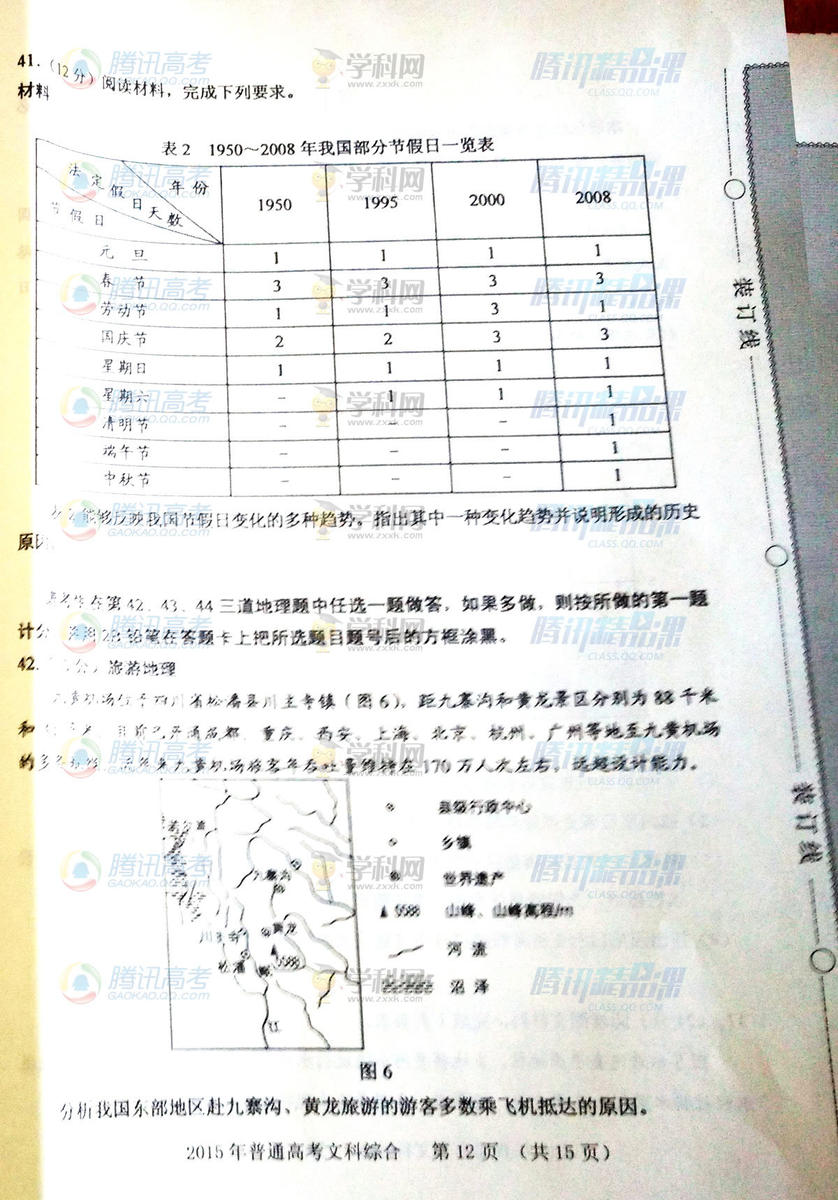 41.(12分)阅读材料，完成下列要求。
材料
表2 1950～2008年我国部分节假日一览表
法定假日天数 年份 节假日 1950 1995 2000 2008
元旦 1 1 1 1
春节 3 3 3 3
劳动节 1 1 3 1
国庆节 2 2 3 3
星期日 1 1 1 1
星期六 - 1 1 1
清明节 - - - 1
端午节 - - - 1
中秋节 - - - 1
能够反映我国节假日变化的多种趋势。指出其中一种变化趋势并说明形成的历史
原因
考生在第42、43、44三道地理题中任选一题做答，如果多做，则按所做的第一题
计分 2B铅笔在答题卡上把所选题目题号后的方框涂黑。
42. 分）旅游地理
九黄机场位于四川省松潘县川主寺镇（图6），距九寨沟和黄龙景区分别为88千米
和 千米，目前已开通成都、重庆、西安、上海、北京、杭州、广州等地至九黄机场
的多 近年来九黄机场旅客年吞吐量维持在170万人次左右，远超设计能力。
若尔盖
九寨沟
川主寺
黄龙
松潘
5588
岷
江
县级行政中心
乡镇
世界遗产
5588 山峰、山峰高程/m
河流
沼泽
图6
分析我国东部地区赴九寨沟、黄龙旅游的游客多数乘飞机抵达的原因。
2015年普通高考文科综合 第12页 （共15页）
装订线
装订线
腾讯高考
GAOKAO.QQ.COM
学科网
www.zxxk.com
腾讯精品课
CLASS.QQ.COM